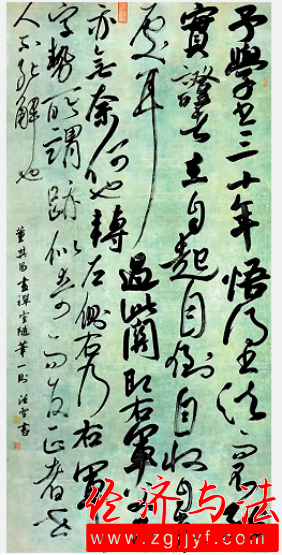 予學書三十年悟得書法而不能
實證者在自起自倒自收自
處耳過此關即右軍
亦無奈何也轉左側右乃右軍
字勢所謂跡似奇而反正者世
人不能解也
董其昌畫禪室隨筆一則
经济与法
www.zgjjyf.com